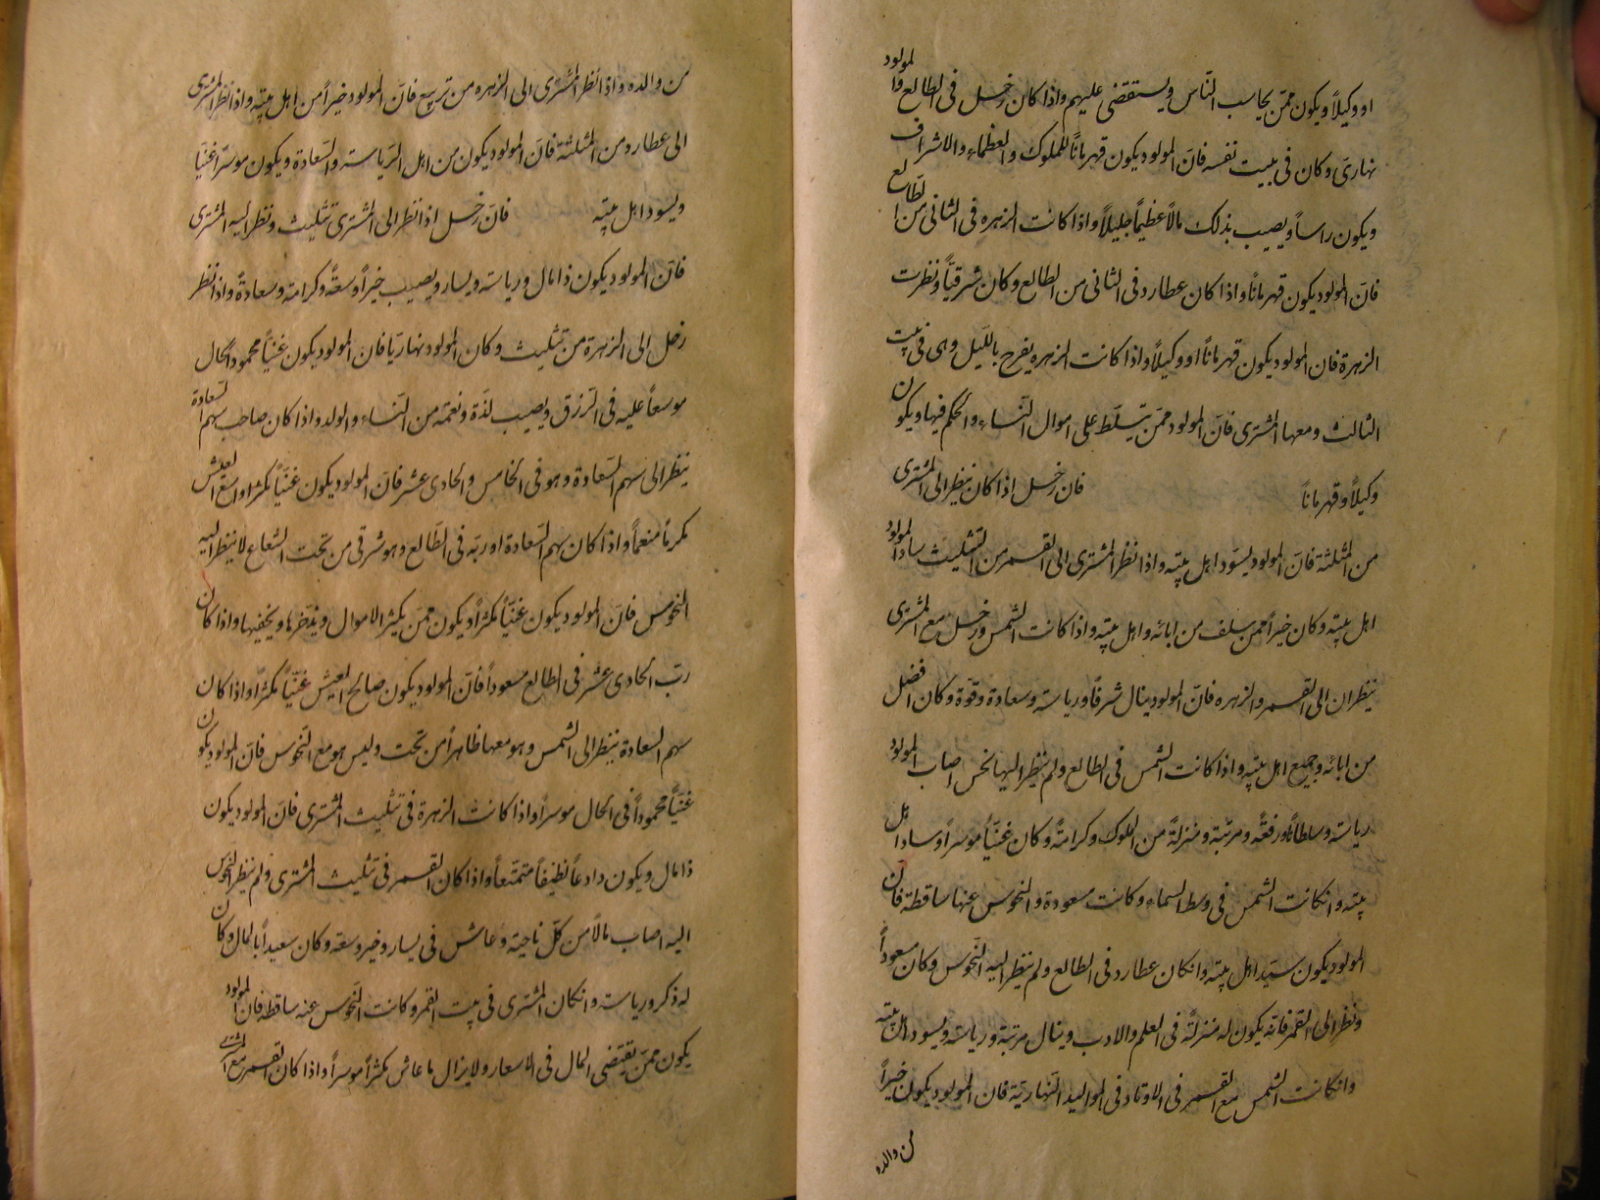 او وكيلاً ويكون ممّن يحاسب النّاس ويستقضى عليهم واذا كان زحل فى الطالع والمولود
نهارىّ وكان فى بيت نفسه فانّ المولود يكون قهرماناً للملوك والعظماء والاشراف
ويكون راساً ويصيب بذلك مالاً عظيماً جليلاً واذا كانت الزهره فى الثانى من الطالع
فانّ المولود يكون قهرماناً واذا كان عطارد فى الثانى من الطالع وكان شرقيّاً ونظرت
الزهرة فان المولود يكون قهرماناً او وكيلاً واذا كانت الزهره يفرح بالليل وهى فى بيت
الثالث ومعها المشترى فانّ المولود ممّن يتسلّط على اموال النساء والحكم فيها ويكون
وكيلاً وقهرماناً فان زحل اذا كان ينظر الى المشترى
من المثلثة فانّ المولود يسود اهل بيته واذا نظر المشترى الى القمر من التثليث ساد المولود
اهل بيته وكان خيراً ممن سلف من ابائه واهل بيته واذا كانت الشمس وزحل مع المشترى
ينظران الى القمر والزهره فانّ المولود ينال شرفاً ورياسته وسعادة وقوّة وكان افضل
من ابائه وجميع اهل بيته واذا كانت الشمس فى الطالع ولم ينظر اليها نحس اصاب المولود
رياسته وسلطاناً ورفعةً ومرتبة ومنزلةً من الملوك وكرامةً وكان غنيّاً موسراً وساد اهل
بيته وانكانت الشمس فى وسط السماء وكانت مسعودة والنحوس عنها ساقطة فان
المولود يكون سيّد اهل بيته وانكان عطارد فى الطالع ولم ينظر اليه النحوس وكان مسعوداً
ونظر الى القمر فانّه يكون له منزلةً فى العلم والادب وينال مرتبة ورياسته ويسود اهل بيته
وانكانت الشمس مع القمر فى الاوتاد فى المواليد النّهاريّة فان المولود يكون خيراً
من والده
من والده واذا نظر المشترى الى الزهره من تربيع فانّ المولود خيراً من اهل بيته واذا نظر المشترى
الى عطارد من المثلثة فانّ المولود يكون من اهل الرّياسته والسّعادة ويكون موسراً غنيّاً
ويسود اهل بيته فانّ زحل اذا نظر الى المشترى تثليث ونظر اليه المشترى
فانّ المولود يكون ذا مال ورياسته ويسار ويصيب خيراً وسعةً وكرامته وسعادةً واذا نظر
زحل الى الزهرة من تثليث وكان المولود نهاريّا فان المولود يكون غنيّاً محمود الحال
موسعاً عليه فى الرّزق ويصيب لذّة ونعمته من النّساء والولد واذا كان صاحب سهم السعادة
ينظر الى سهم السّعادة وهو فى الخامس والحادى عشر فانّ المولود يكون غنيّاً مكثراً واسع العيش
مكرماً منعماً واذا كان سهم السّعادة او ربّه فى الطّالع وهو شرقى من تحت الشعاع لا ينظر اليه
النحوس فانّ المولود يكون غنيّاً مكثراً ويكون ممّن يكثر الاموال ويدّخرها ويخفيها واذا كان
ربّ الحادى عشر فى الطالع مسعوداً فانّ المولود يكون صالح العيش غنيّاً مكثراً واذا كان
سهم السعادة ينظر الى الشمس وهو معها ظاهراً من تحت وليس هو مع النّحوس فانّ المولود يكون
غنيّاً محموداً فى الحال موسراً واذا كانت الزهرة فى تثليث المشترى فانّ المولود يكون
ذا مال ويكون وادعاً نظيفاً متمتّعاً واذا كان القمر فى تثليث المشترى ولم ينظر النحوس
اليه اصاب مالاً من كلّ ناحيته وعاش فى يسار وخير وسعة وكان سعيداً بالمال وكان
له ذكر ورياسته وانكان المشترى فى بيت القمر وكانت النّحوس عنه ساقطه فان المولود
يكون ممّن يقتضى المال فى الاسعار ولا يزال ما عاش مكثراً موسراً واذا كان القمر مع المشترى